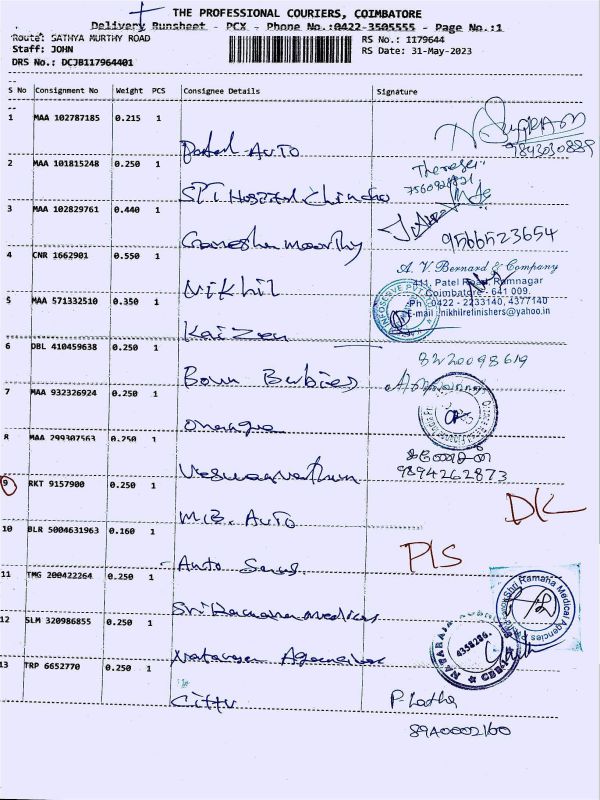 THE PROFESSIONAL COURIERS, COIMBATORE
Delivery Runsheet - PCX - Phone No.:0422-3505555 - Page No.:1
Route: SATHYA MURTHY ROAD
RS No.: 1179644
Staff: JOHN
RS Date: 31-May-2023
DRS No.: DCJB117964401
S No Consignment No Weight PCS Consignee Details Signature
1 MAA 102787185 0.215 1
Patel Auto
9843030889
2 MAA 101815248 0.250 1
SPT Hospital
3 MAA 102829761 0.440 1
Ganesha moorthy
9566523654
4 CNR 1662901 0.550 1
Nikhil
A. V. Bernard & Company
411, Patel Road, Ramnagar
Coimbatore - 641 009.
Ph : 0422 - 2233140, 4377140
E-mail : nikhilrefinishers@yahoo.in
5 MAA 571332510 0.350 1
Kaizen
INFOSERVE PVT
6 DBL 410459638 0.250 1
Born Babies
8220098619
7 MAA 932326924 0.250 1
8 MAA 299307563 0.250 1
9894262873
9 RKT 9157900 0.250 1
M.B. Auto
DK
10 BLR 5004631963 0.160 1
Auto
PLS
11 TMG 200422264 0.250 1
Sri Ramana medical
Shri Ramaha Medical Agencies
12 SLM 320986855 0.250 1
Natarajan Agencies
4358286
13 TRP 6652770 0.250 1
Cittu
P. Latha
8940002160